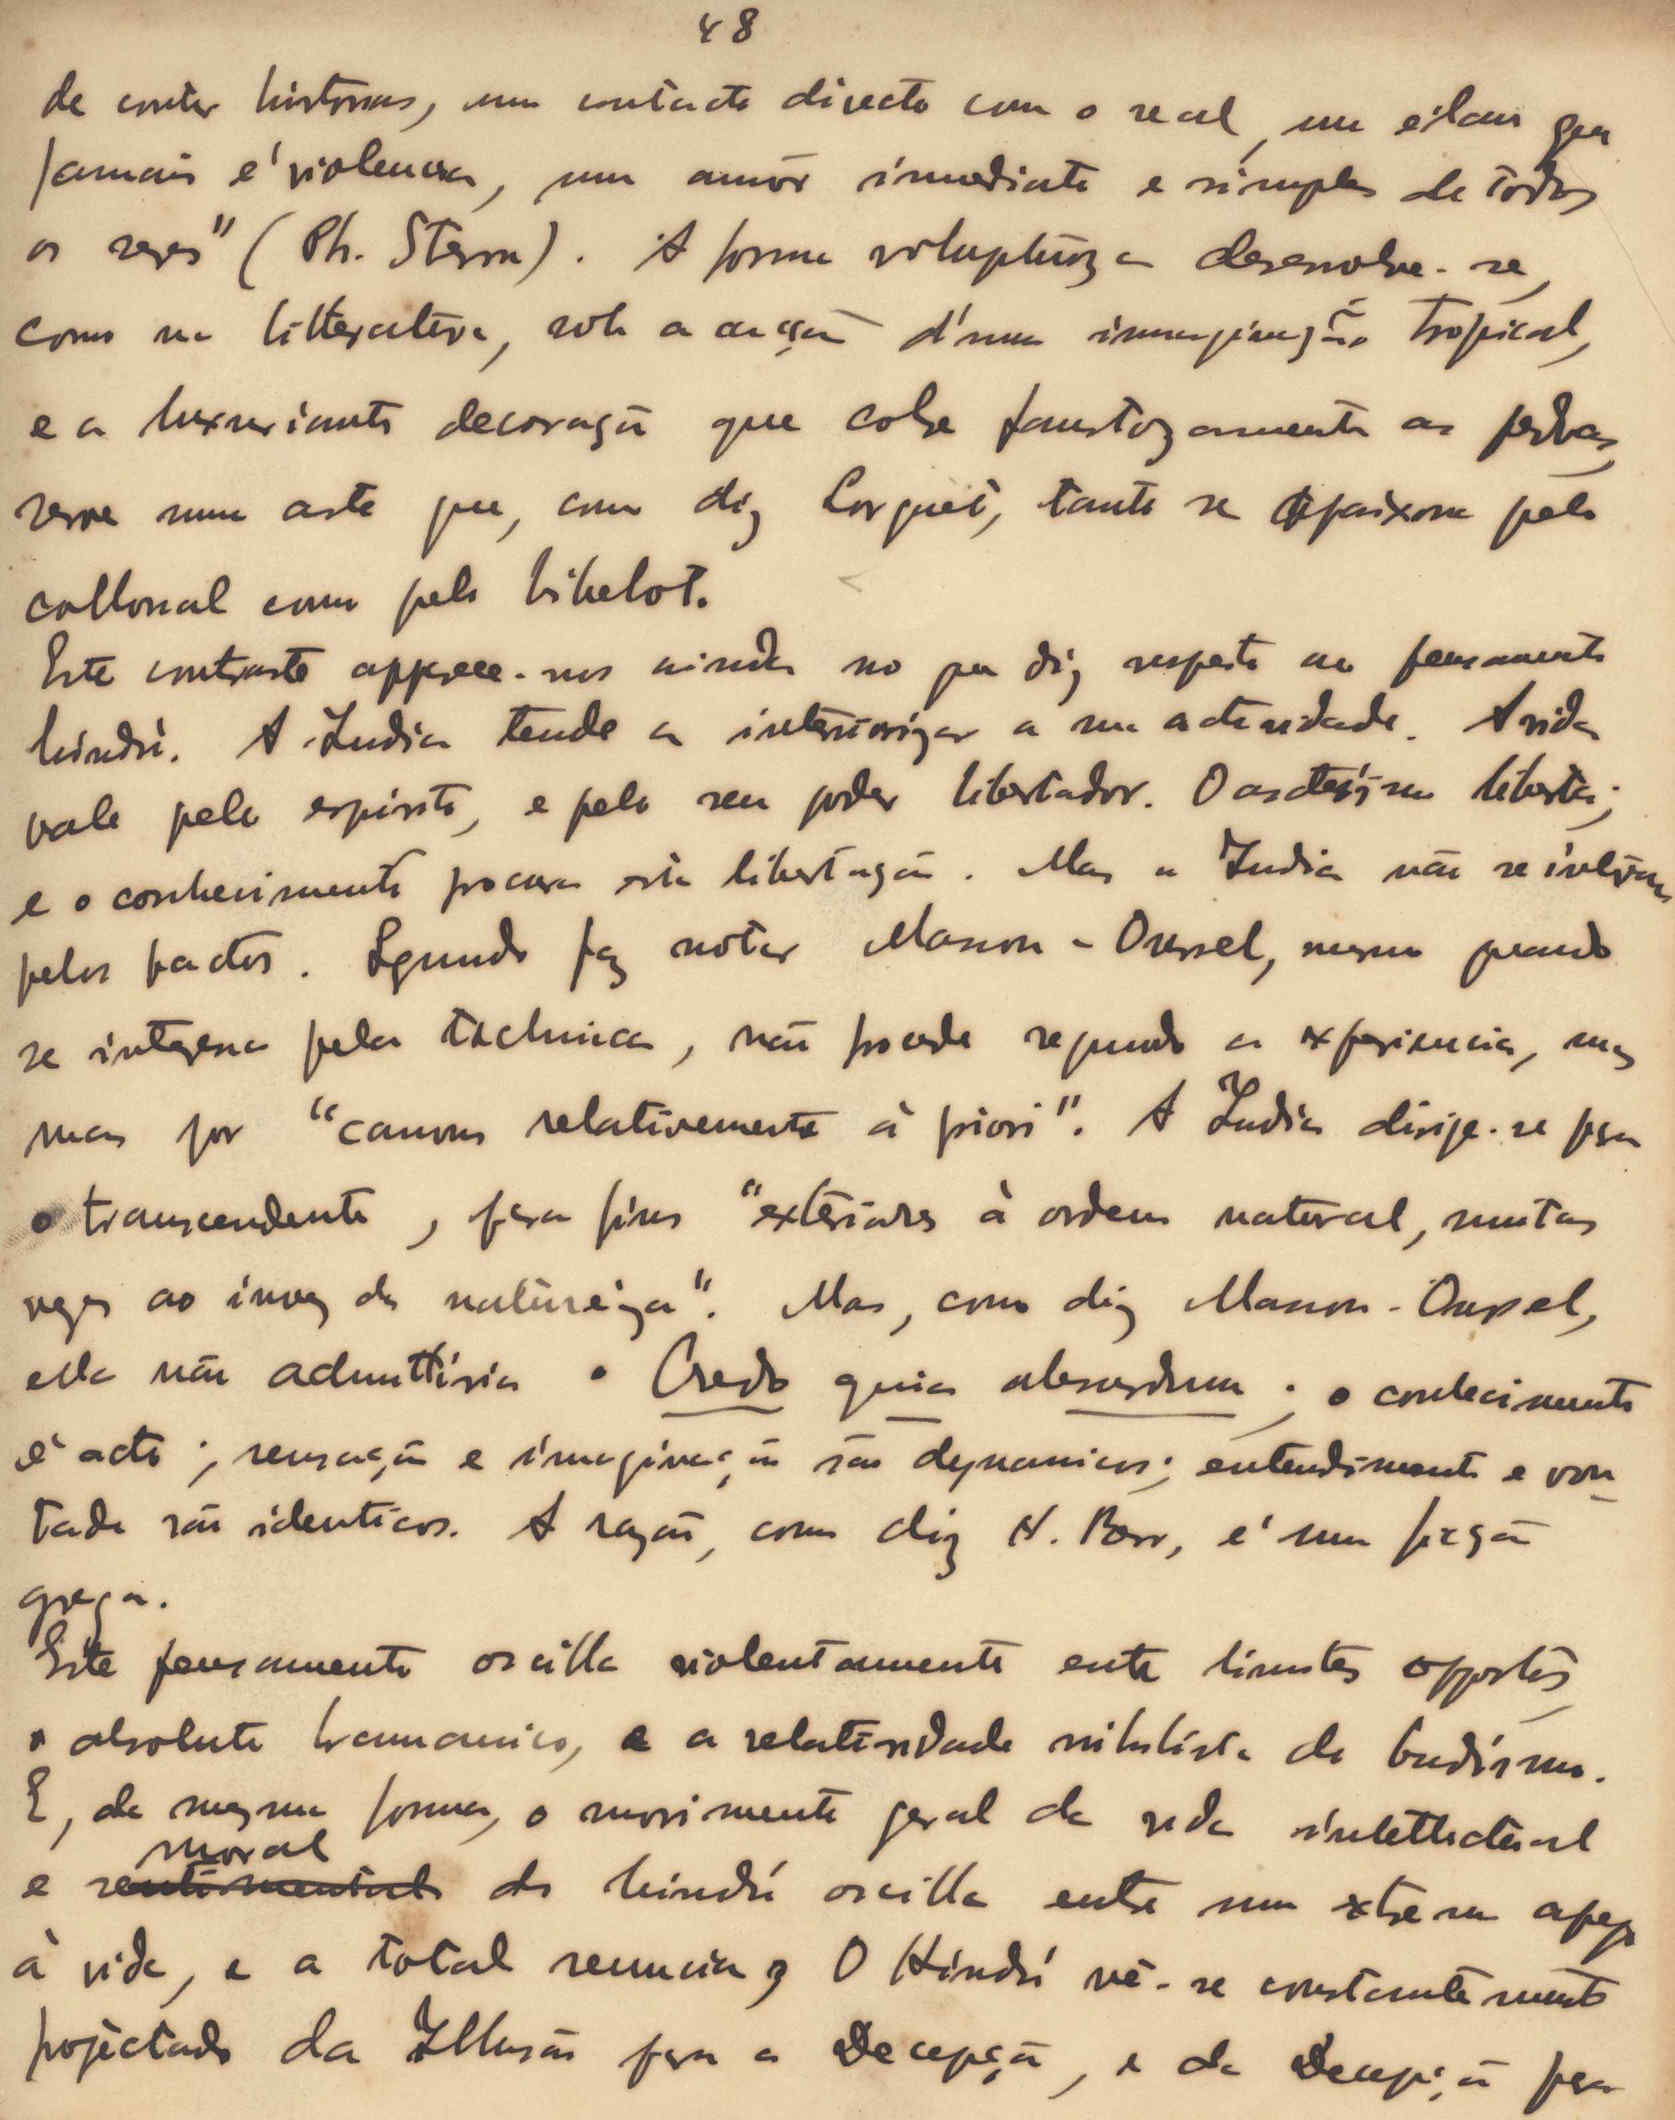 48
de contar historias, um contacto directo com o real, um élan que
jamais é violencia, um amôr immediato e simples de todos
os seres" (Ph. Stern). A forma voluptuoza desenvolve-se,
como na litteratura, sob a acção d'uma immaginação tropical,
e a luxuriante decoração que cobre faustozamente as pedras,
serve uma arte que, como diz Lorquet, tanto se apaixona pelo
collossal como pelo bibelot.
Este contraste apparece-nos ainda no que diz respeito ao pensamento
hindú. A India tende a interiorizar a sua actividade. A vida
vale pelo espirito, e pelo seu poder libertador. O ascetismo liberta;
e o conhecimento procura esta libertação. Mas a India não se interessa
pelos factos. Segundo faz notar Masson-Oursel, mesmo quando
se interessa pela technica, não procede segundo a experiencia, mas
mas por "canons relativements à priori". A India dirije-se para
o transcendente, para fins "exteriores à ordem natural, muitas
vezes ao invez da naturêza". Mas, como diz Masson-Oursel,
ella não admittiria o Credo quia absurdum; o conhecimento
é acto; sensação e imaginação são dynamicos; entendimento e von-
tade são identicos. A razão, como diz H. Berr, é uma ficção
grega.
Este pensamento oscilla violentamente entre limites oppostos,
o absoluto bramanico, e a relatividade nihilista do budismo.
E, da mesma forma, o movimento geral da vida intellectual
moral
e sentimental do hindú oscilla entre um extremo apego
à vida, e a total renuncia. O Hindú vê-se constantemente
projectado da Illusão para a Decepção, e da Decepção para